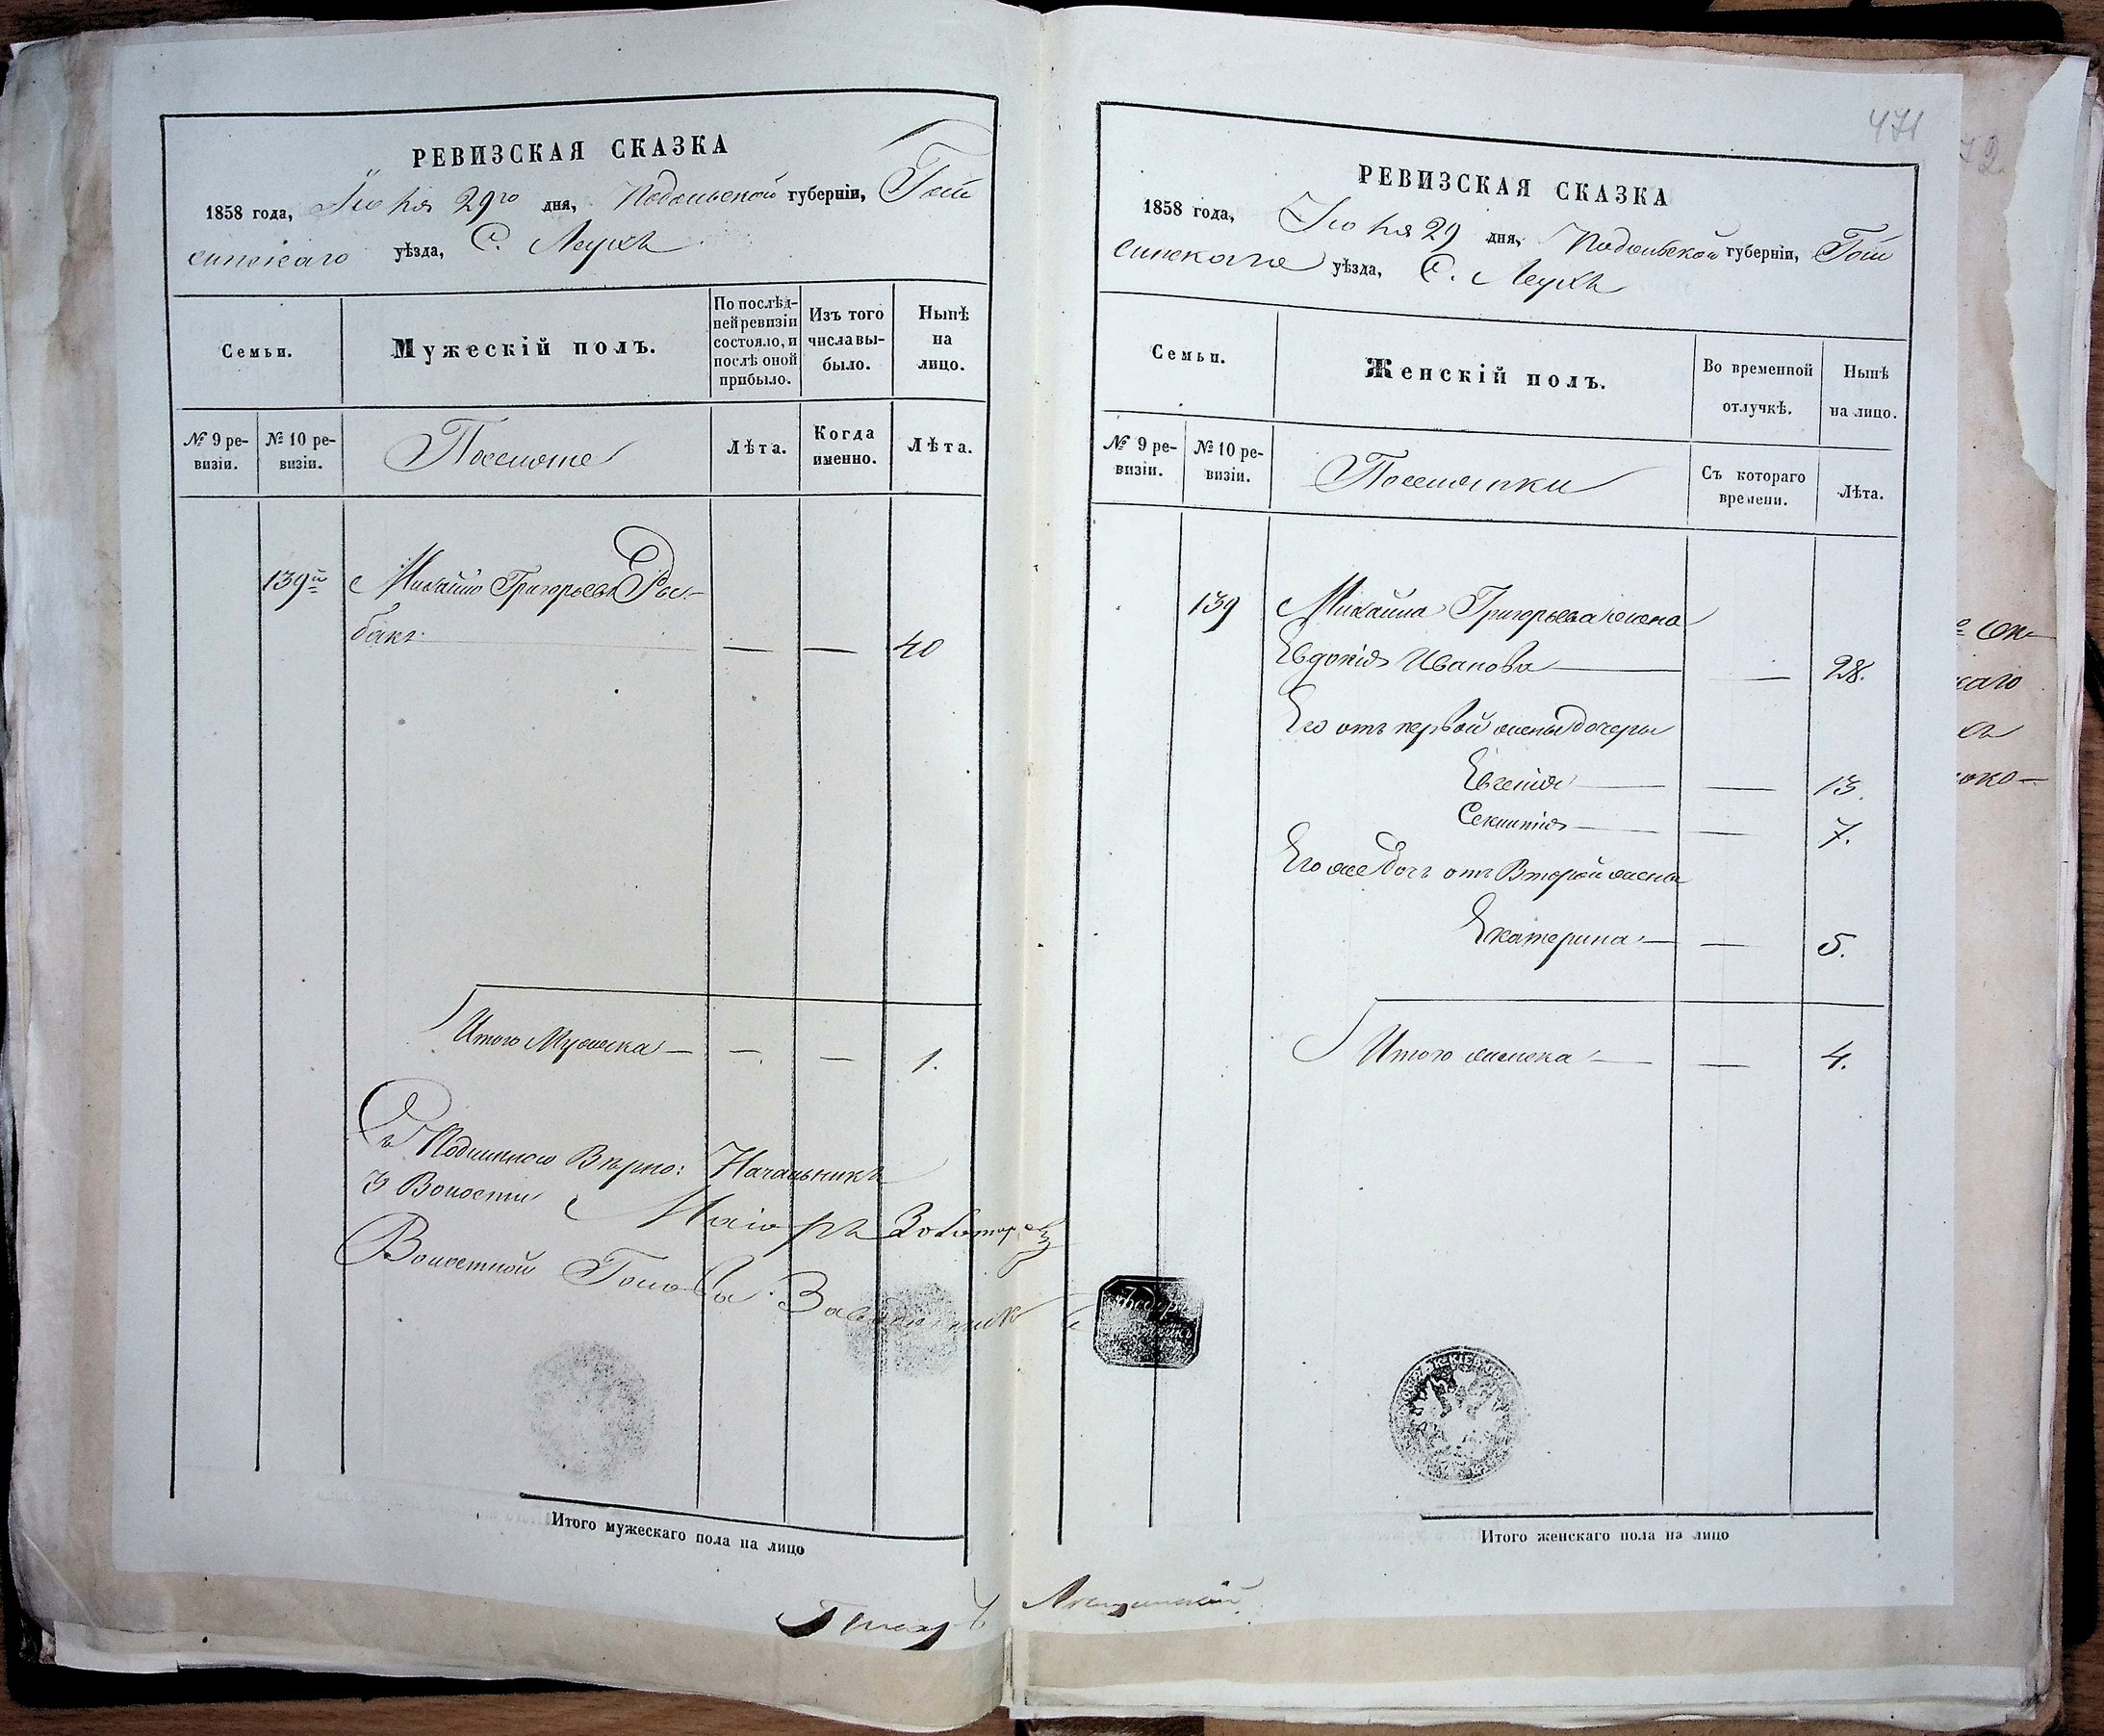 РЕВИЗСКАЯ СКАЗКА
1858 года, Іюня 29го дня, Подольской губерніи, Гай
синскаго уѣзда, С. Леухъ
Семьи.
Мужескій полъ.
По послѣд-
ней ревизіи
состояло, и
послѣ оной
прибыло.
Изъ того
числа вы-
было.
Нынѣ
на
лицо.
№ 9 ре-
визіи.
№ 10 ре-
визіи.
Поселяне
Лѣта.
Когда
именно.
Лѣта.
139й Михайло Григорьевъ Рос-
бакъ — — 40
Итого Мужеска — — — 1.
Съ Подлинною Вѣрно: Начальникъ
3 Волости Маіоръ
Волостной Голова
Итого мужескаго пола на лицо
471
РЕВИЗСКАЯ СКАЗКА
1858 года, Іюня 29 дня, Подольской губерніи, Гай
синскаго уѣзда, С. Леухъ
Семьи.
Женскій полъ.
Во временной
отлучкѣ.
Нынѣ
на лицо.
№ 9 ре-
визіи.
№ 10 ре-
визіи.
Поселянки
Съ котораго
времени.
Лѣта.
139 Михайла Григорьева жена
Евдокія Иванова — — 28.
Его отъ первой жены дочери
Евгенія — — 13.
— — 7.
Его же дочь отъ Второй жены
Екатерина — — 5.
Итого женска — — 4.
Итого женскаго пола на лицо